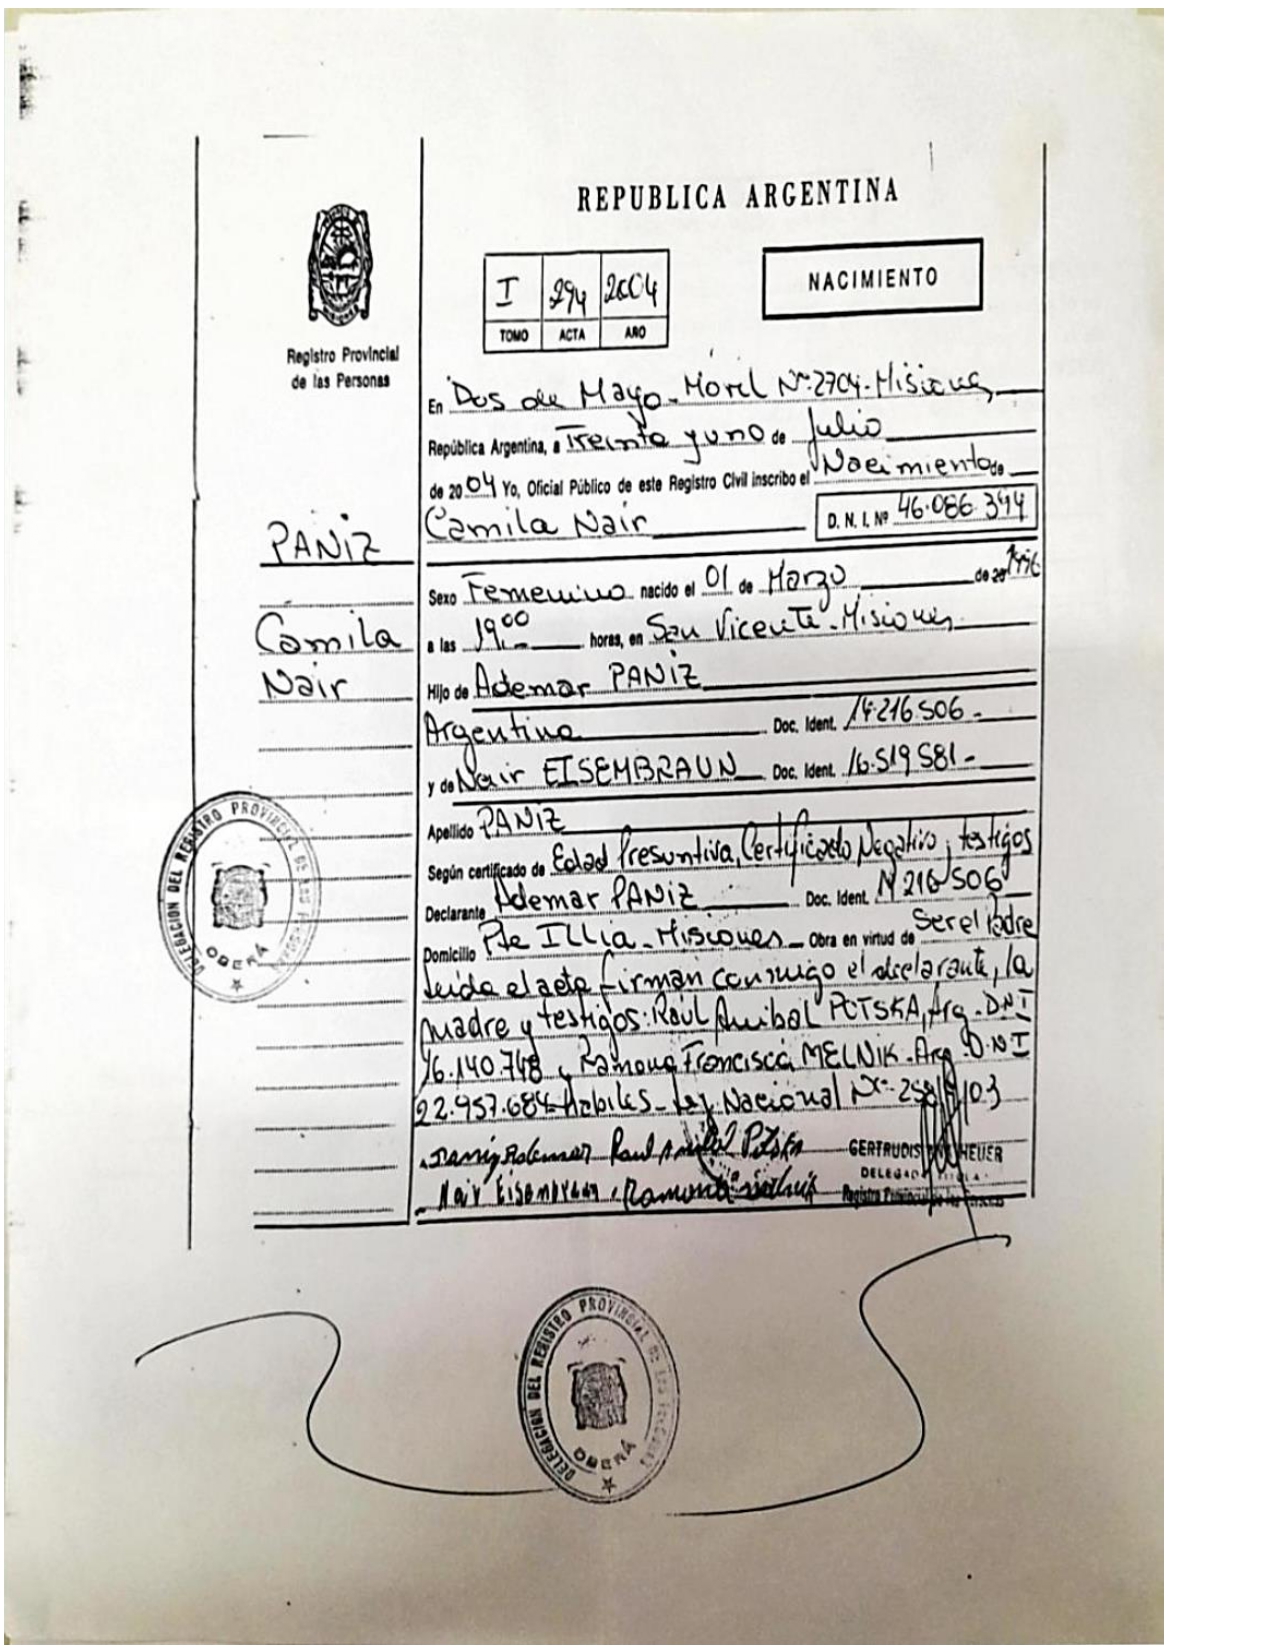 REPUBLICA ARGENTINA
MISIONES
Registro Provincial
de las Personas
I 294 2004
TOMO ACTA AÑO
NACIMIENTO
En Dos de Mayo - Movil Nº: 2704 - Misiones
República Argentina, a Treinta y uno de Julio
de 2004 Yo, Oficial Público de este Registro Civil inscribo el Nacimiento de
Camila Nair D. N. I. Nº 46.086.394
PANIZ
Camila
Nair
Sexo Femenino nacido el 01 de Marzo de 1996
a las 19,00 horas, en San Vicente - Misiones
Hijo de Ademar PANIZ
Argentina Doc. Ident. 14.216.506 -
y de Nair EISEMBRAUN Doc. Ident. 16.519.581 -
Apellido PANIZ
Según certificado de Edad Presuntiva, Certificado Negativo y testigos
Declarante Ademar PANIZ Doc. Ident. 14 216 506
Domicilio Pte ILLia - Misiones Obra en virtud de Ser el Padre
Leida el acta firman conmigo el declarante, la
madre y testigos: Raúl Anibal POTSKA, Arg. DNI
16.140.748 y Ramona Francisca MELNIK - Arg. D.N.I
22.957.684 Habiles - Ley Nacional Nº: 258 /03
Paniz Ademar Raul Anibal Potska
Nair Eisembraun Ramona
GERTRUDIS HEUER
Registro Provincial de las Personas
DELEGACION DEL REGISTRO PROVINCIAL DE LAS PERSONAS
OBERÁ
DELEGACION DEL REGISTRO PROVINCIAL DE LAS PERSONAS
OBERÁ